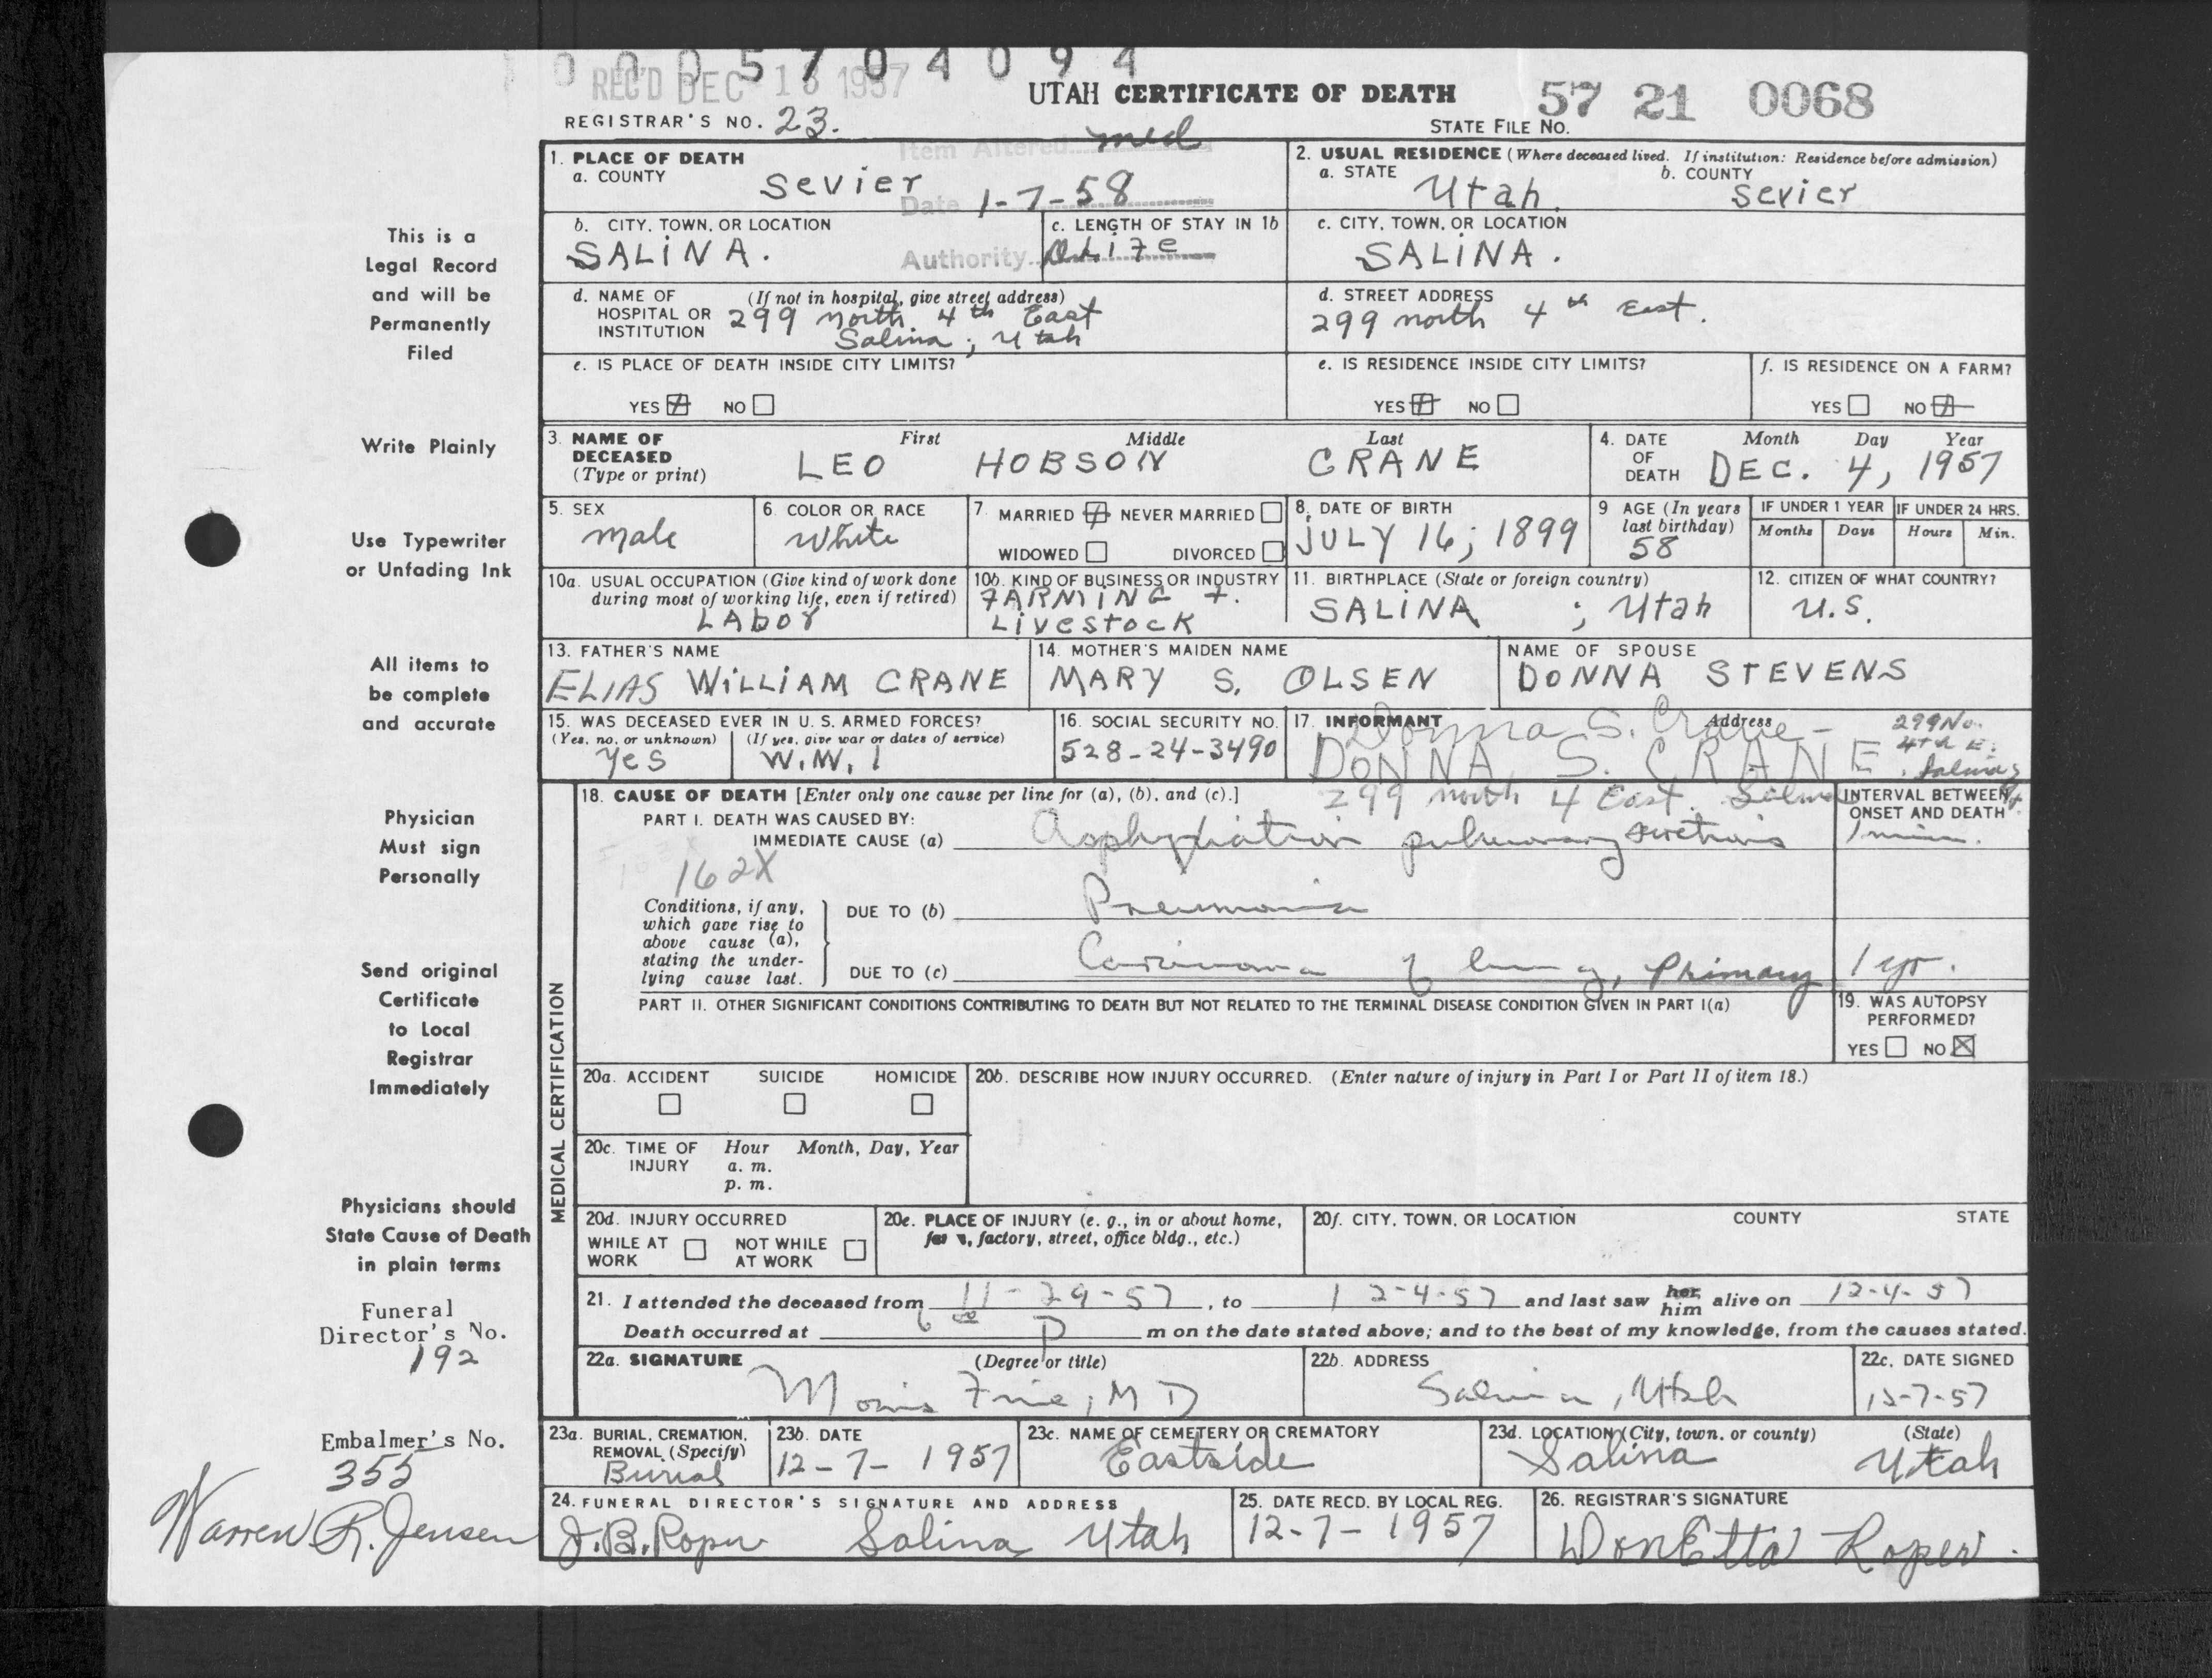 0005704094
REC'D DEC 18 1957
UTAH CERTIFICATE OF DEATH
57 21 0068
REGISTRAR'S NO. 23.
STATE FILE No.
Item Altered med
Date 1-7-58
Authority
1. PLACE OF DEATH
a. COUNTY Sevier
2. USUAL RESIDENCE (Where deceased lived. If institution: Residence before admission)
a. STATE Utah. b. COUNTY Sevier
b. CITY, TOWN, OR LOCATION SALINA.
c. LENGTH OF STAY IN 1b Life
c. CITY, TOWN, OR LOCATION SALINA.
d. NAME OF HOSPITAL OR INSTITUTION (If not in hospital, give street address)
299 north 4th East
Salina; Utah
d. STREET ADDRESS
299 north 4th East.
e. IS PLACE OF DEATH INSIDE CITY LIMITS?
YES NO
e. IS RESIDENCE INSIDE CITY LIMITS?
YES NO
f. IS RESIDENCE ON A FARM?
YES NO
3. NAME OF DECEASED (Type or print)
First Middle Last
LEO HOBSON CRANE
4. DATE OF DEATH Month Day Year
DEC. 4, 1957
5. SEX
male
6. COLOR OR RACE
White
7. MARRIED NEVER MARRIED
WIDOWED DIVORCED
8. DATE OF BIRTH
JULY 16; 1899
9 AGE (In years last birthday)
58
IF UNDER 1 YEAR IF UNDER 24 HRS.
Months Days Hours Min.
10a. USUAL OCCUPATION (Give kind of work done during most of working life, even if retired)
LAbor
10b. KIND OF BUSINESS OR INDUSTRY
FARMING +.
LIVESTOCK
11. BIRTHPLACE (State or foreign country)
SALINA ; Utah
12. CITIZEN OF WHAT COUNTRY?
U.S.
13. FATHER'S NAME
ELIAS WILLIAM CRANE
14. MOTHER'S MAIDEN NAME
MARY S. OLSEN
NAME OF SPOUSE
DONNA STEVENS
15. WAS DECEASED EVER IN U. S. ARMED FORCES?
(Yes, no, or unknown) (If yes, give war or dates of service)
Yes W.W. 1
16. SOCIAL SECURITY NO.
528-24-3490
17. INFORMANT Address
Donna S. Crane - 299 No.
4th E.
Salina
DONNA S. CRANE
299 north 4 East. Salina
18. CAUSE OF DEATH [Enter only one cause per line for (a), (b), and (c).]
INTERVAL BETWEEN ONSET AND DEATH
PART I. DEATH WAS CAUSED BY:
IMMEDIATE CAUSE (a) Asphyxiation pulmonary secretions 1 min.
162X
Conditions, if any, which gave rise to above cause (a), stating the underlying cause last.
DUE TO (b) Pneumonia
DUE TO (c) Carcinoma of lung, Primary 1 yr.
PART II. OTHER SIGNIFICANT CONDITIONS CONTRIBUTING TO DEATH BUT NOT RELATED TO THE TERMINAL DISEASE CONDITION GIVEN IN PART I(a)
19. WAS AUTOPSY PERFORMED?
YES NO
MEDICAL CERTIFICATION
20a. ACCIDENT SUICIDE HOMICIDE
20b. DESCRIBE HOW INJURY OCCURRED. (Enter nature of injury in Part I or Part II of item 18.)
20c. TIME OF INJURY Hour Month, Day, Year
a. m.
p. m.
20d. INJURY OCCURRED
WHILE AT WORK NOT WHILE AT WORK
20e. PLACE OF INJURY (e. g., in or about home, factory, street, office bldg., etc.)
20f. CITY, TOWN, OR LOCATION COUNTY STATE
21. I attended the deceased from 11-29-57, to 12-4-57 and last saw her him alive on 12-4-57
Death occurred at 6 P m on the date stated above; and to the best of my knowledge, from the causes stated.
22a. SIGNATURE (Degree or title)
M D
22b. ADDRESS
Salina, Utah
22c. DATE SIGNED
12-7-57
23a. BURIAL, CREMATION, REMOVAL (Specify)
Burial
23b. DATE
12-7-1957
23c. NAME OF CEMETERY OR CREMATORY
Eastside
23d. LOCATION (City, town, or county) (State)
Salina Utah
24. FUNERAL DIRECTOR'S SIGNATURE AND ADDRESS
J.B. Roper Salina Utah
25. DATE RECD. BY LOCAL REG.
12-7-1957
26. REGISTRAR'S SIGNATURE
DonEtta Roper.
This is a
Legal Record
and will be
Permanently
Filed
Write Plainly
Use Typewriter
or Unfading Ink
All items to
be complete
and accurate
Physician
Must sign
Personally
Send original
Certificate
to Local
Registrar
Immediately
Physicians should
State Cause of Death
in plain terms
Funeral
Director's No.
192
Embalmer's No.
355
Warren R. Jensen